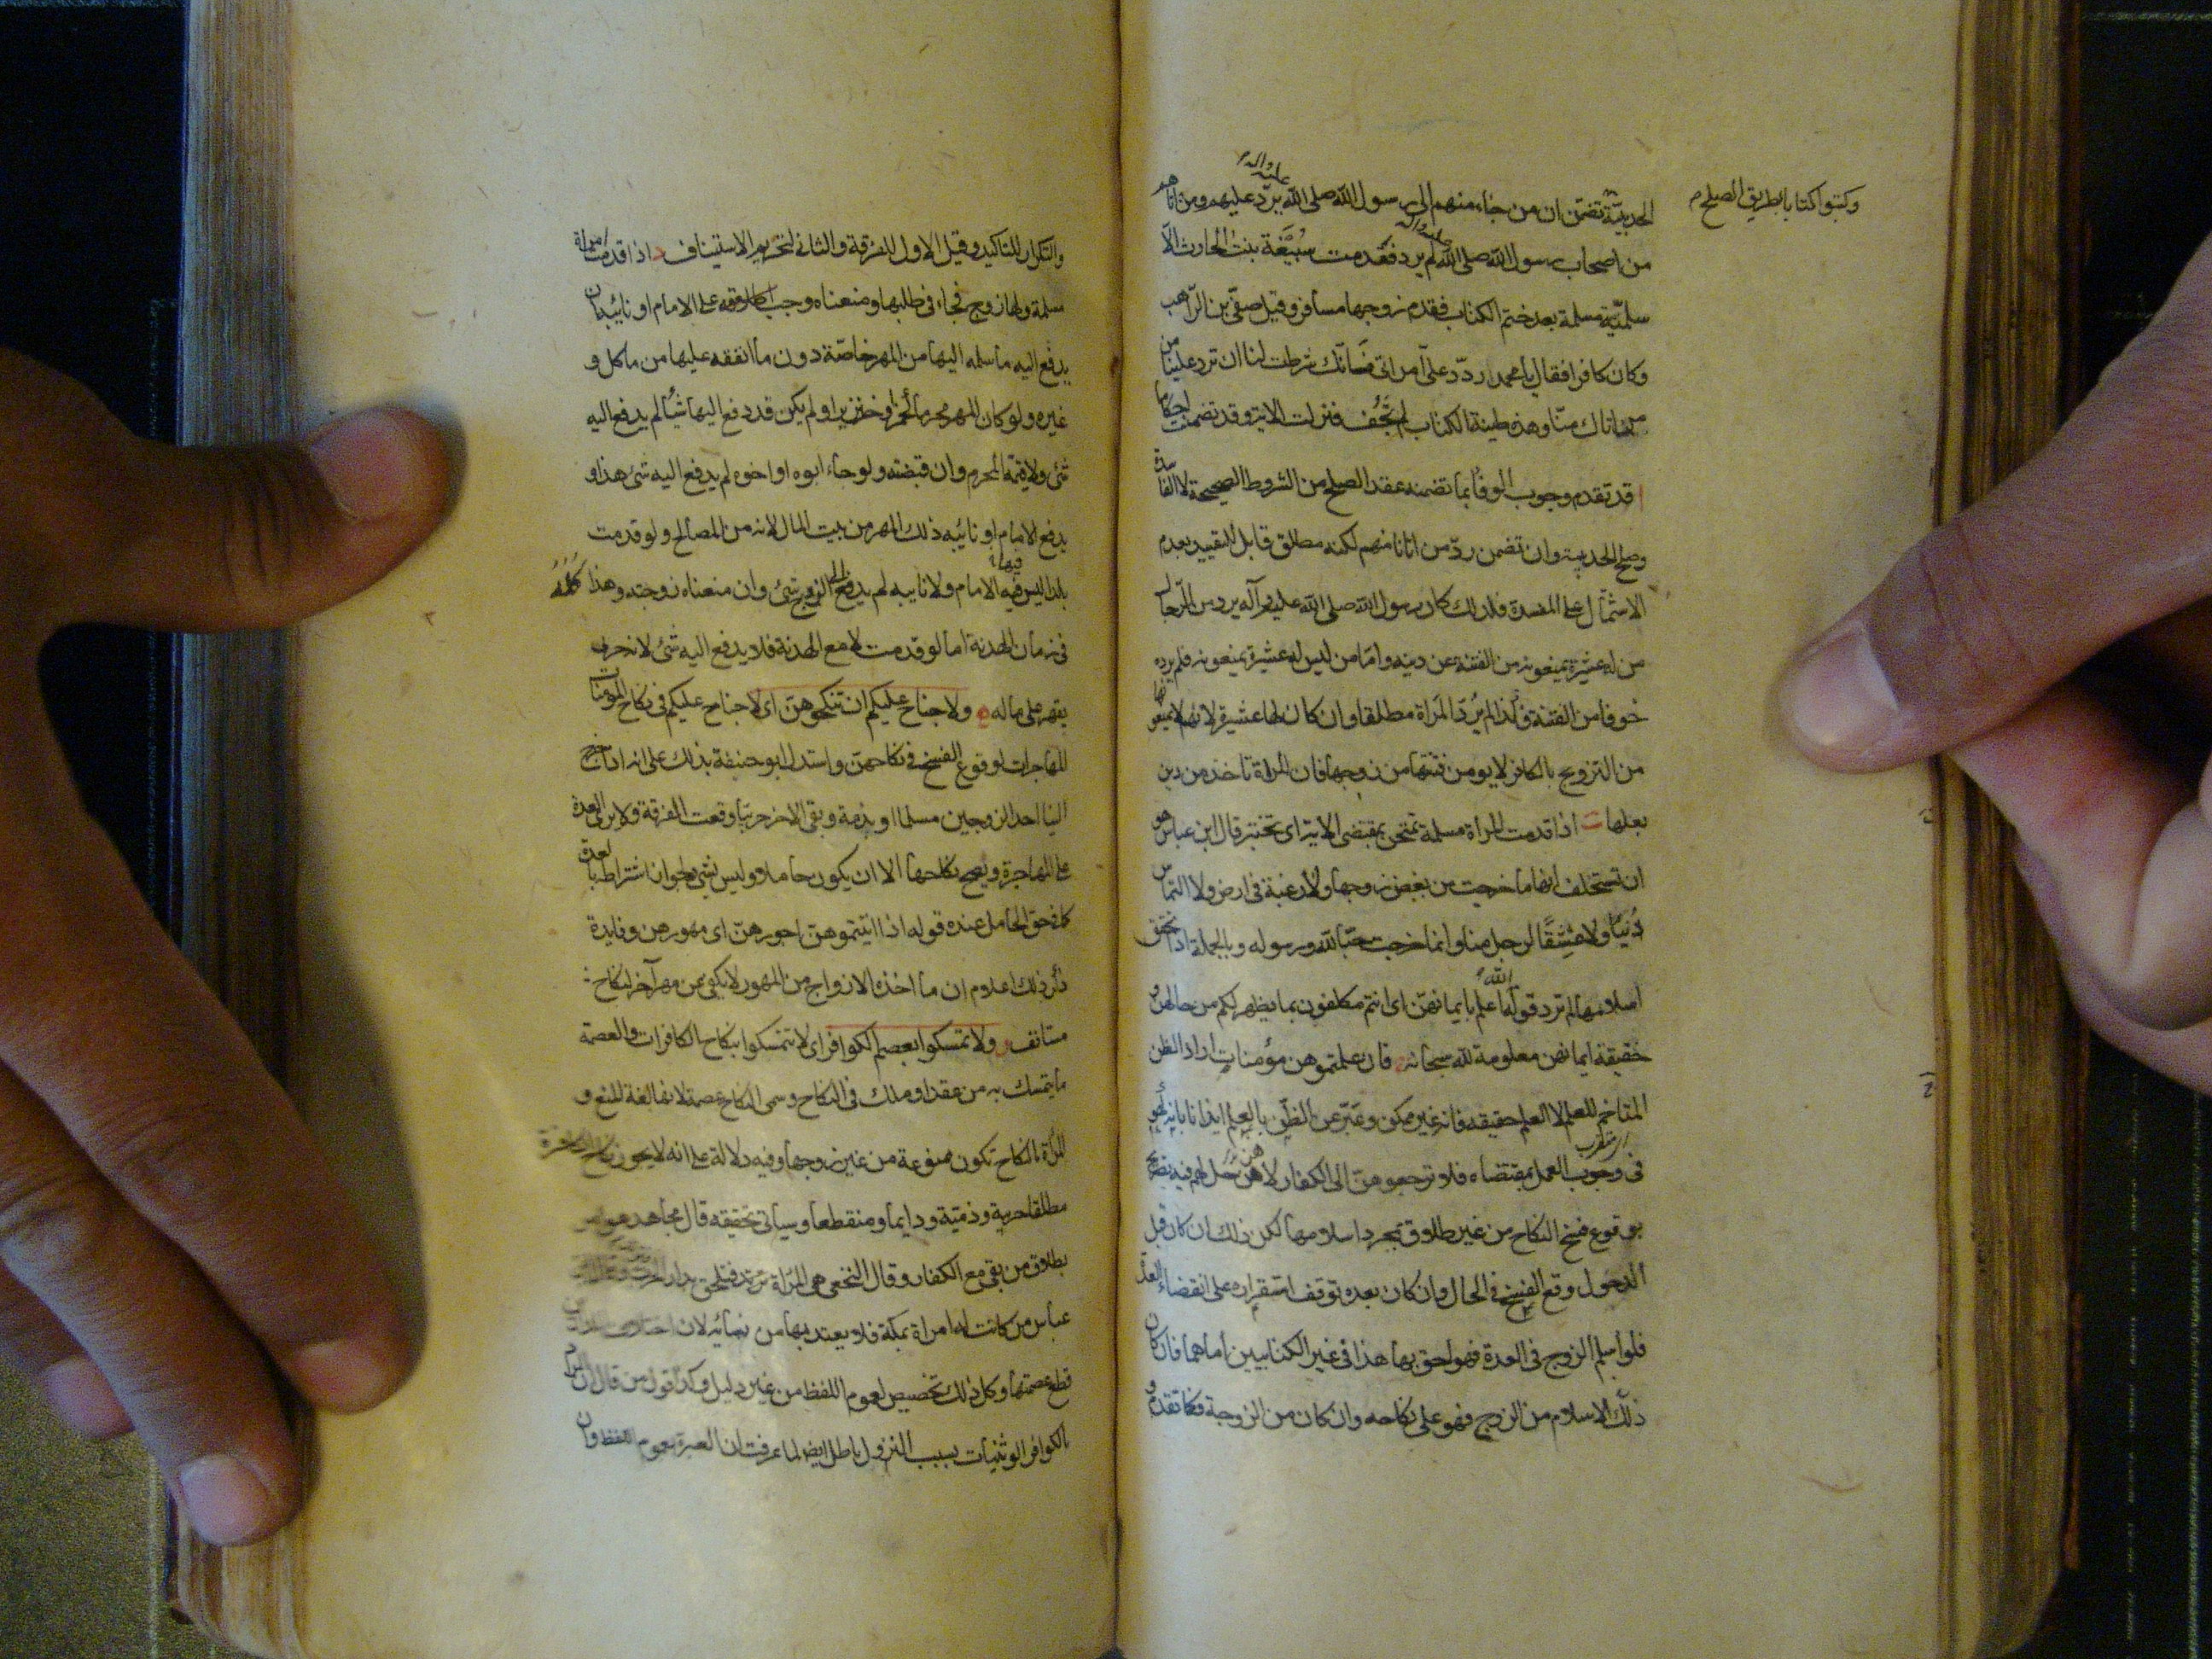 وكتبوا كتابا بطريق الصلح م
الحديبيّة تضمّن ان من جاء منهم الى رسول الله صلى الله عليه واله يردّ عليهم ومن اتاهم
من اصحاب رسول الله صلى الله عليه واله لم يرد فقدمت سبيعة بنت الحارث الا
سلميّة مسلمة بعد ختم الكتاب فقدم زوجها مسافر وقيل صيفي بن الراهب
وكان كافرا فقال يا محمد اردد علىّ امراتى فانّك شرطت لنا ان ترد علينا من
اتاك منّا وهذه طينة الكتاب لم تجف فنزلت الاية وقد تضمنت احكاما
ا قد تقدم وجوب الوفا بما تضمنه عقد الصلح من الشروط الصحيحة لا الفاسدة
وصلح الحديبية وان تضمن ردّ من اتانا منهم لكنه مطلق قابل للتقييد بعدم
الاشتمال على المفسدة فلذلك كان رسول الله صلى الله عليه وآله يرد من الرجال
من له عشيرة يمنعونه من الفتنة عن دينه وامّا من ليس له عشيرة يمنعونه فلم يرده
خوفا من الفتنة ولذا لم يردّ المراة مطلقا وان كان لها عشيرة لانهم لا يمنعونها
من التزويج بالكافر لا يومن فتنتها من زوجها فان المراة تاخذ من دين
بعلها ب اذا قدمت المراة مسلمة تمتحن بمقتضى الاية اى تختبر قال ابن عباس هو
ان تستحلف انها ما خرجت من بغض زوجها ولا رغبة فى ارض ولا التماس
دنيا ولا عشقًا لرجل منا وانما خرجت حبّا لله ورسوله وبالجملة اذا تحقق
اسلامها لم ترد قوله الله اعلم بايمانهنّ اى انتم مكلفون بما يظهر لكم من حالهن و
حقيقة ايمانهن معلومة لله سبحانه فان علمتموهن مؤمنات اراد الظن
المتاخم للعلم لا العلم حقيقه فانه غير ممكن وعبّر عن الظنّ بالعلم ايذانا بانه كهو
فى وجوب العمل بمقتضاه فلا ترجعوهنّ الى الكفار لا هن حل لهم فيه تصريح
بوقوع فسخ النكاح من غير طلاق بمجرد اسلامها لكن ذلك ان كان قبل
الدخول وقع الفسخ فى الحال وان كان بعده توقف استقراره على انقضاء العدة
فلو اسلم الزوج فى العدة فهو احق بها هذا فى غير الكتابيين اما هما فان كان
ذلك الاسلام من الزوج فهو على نكاحه وان كان من الزوجة فكما تقدم و
والتكرار للتاكيد وقيل الاول للفرقة والثانى لتحريم الاستيناف د اذا قدمت امراة
مسلمة ولها زوج فجاء فى طلبها ومنعناه وجب على الامام او نايبه ان
يدفع اليه ما سلمه اليها من المهر خاصّة دون ما انفقه عليها من ماكل و
غيره ولو كان المهر محرما كخمر او خنزير او لم يكن قد دفع اليها شيًا لم يدفع اليه
شئ ولا قيمة المحرم وان قبضته ولو جاء ابوه او اخوه لم يدفع اليه شئ هذا و
يدفع الامام او نايبه ذلك المهر من بيت المال لانه من المصالح ولو قدمت
بلدا ليس فيها الامام ولا نايبه لم يدفع الى الزوج شئ وان منعناه زوجته وهذا كله
فى زمان الهدنة اما لو قدمت لا مع الهدنة فلا يدفع اليه شئ لانه حربى
يقهر على ماله ه ولا جناح عليكم ان تنكحوهنّ اى لا جناح عليكم فى نكاح المومنات
المهاجرات لوقوع الفسخ فى نكاحهنّ واستدل ابو حنيفة بذلك على انه اذا خرج
الينا احد الزوجين مسلما او بذمة وبقى الاخر حربيّا وقعت الفرقة ولا يرى العدة
على المهاجرة ويصح نكاحها الا ان يكون حاملا وليس بشئ لجواز اشتراطه بالعدة
كما فى حق الحامل عنده قوله اذا اتيتموهنّ اجورهنّ اى مهورهن وفايدة
ذكر ذلك اعلام ان ما اخذه الازواج من المهور لا يكفى عن مهر آخر لنكاح
مستانف و ولا تمسكوا بعصم الكوافر اى لا تتمسكوا بنكاح الكافرات والعصمة
ما يتمسك به من عقد او ملك فى النكاح وسمى النكاح عصمة لانها لغة المنع و
المراة بالنكاح تكون ممنوعة من غير زوجها وفيه دلالة على انه لا يجوز نكاح الكافرة
مطلقا حربية وذمّية ودايما ومنقطعا وسياتى تحقيقه قال مجاهد
بطلاق من بقى مع الكفار وقال النخعى هى المراة ترتد فتلحق بدار
عباس من كانت له امراة بمكة فلا يعتد بها من نسائه لان
قطع عصمتها وكل ذلك تخصيص لعموم اللفظ من غير دليل وكذا قول من قال ان المراد
بالكوافر الوثنيات بسبب النزول باطل ايضا لما عرفت ان العبرة بعموم اللفظ وان